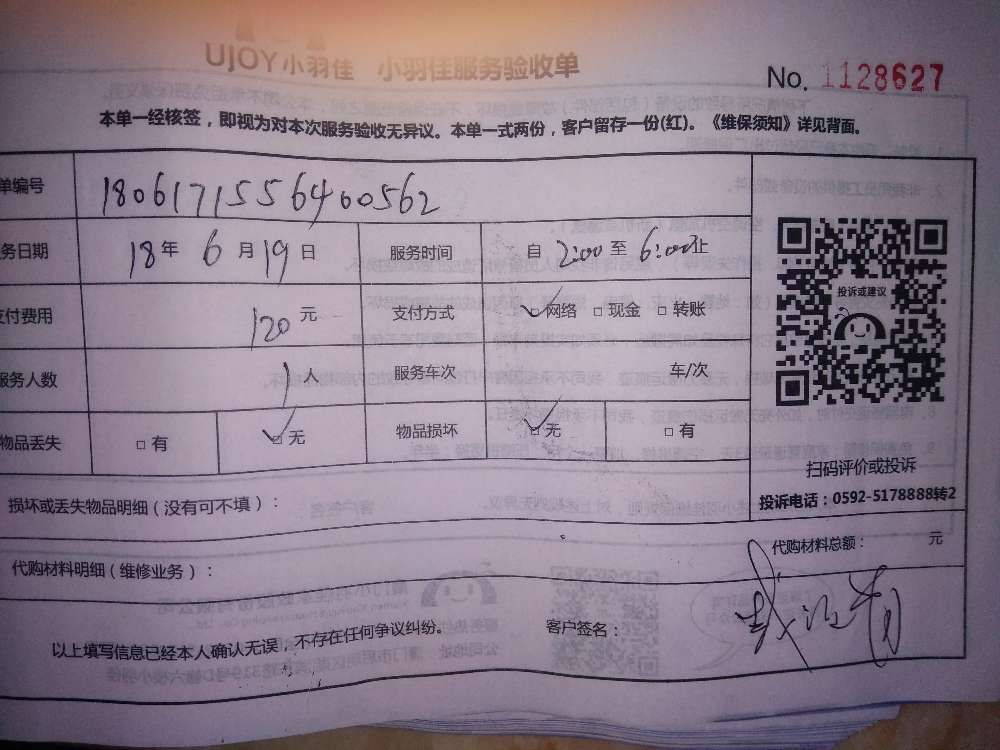 UJOY小羽佳 小羽佳服务验收单
No. 1128627
本单一经核签，即视为对本次服务验收无异议。本单一式两份，客户留存一份(红)。《维保须知》详见背面。
单编号 180617155640056​2
务日期 18年 6月19日 服务时间 自2:00至6:00止
支付费用 120元 支付方式 ☑网络 □现金 □转账
服务人数 1人 服务车次 车/次
物品丢失 □有 ☑无 物品损坏 ☑无 □有
投诉或建议
扫码评价或投诉
投诉电话：0592-5178888转2
损坏或丢失物品明细（没有可不填）：
代购材料明细（维修业务）： 代购材料总额： 元
以上填写信息已经本人确认无误，不存在任何争议纠纷。 客户签名：